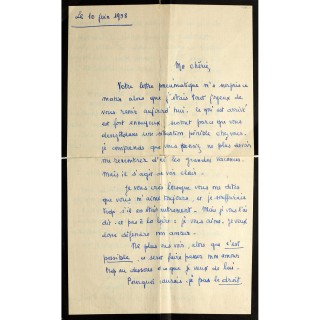 Le 10 juin 1958
Ma chérie,
Votre lettre pneumatique m'a surpris ce
matin alors que j'étais tout joyeux de
vous revoir aujourd'hui. Ce qui est arrivé
est fort ennuyeux surtout parce que vous
une situation pénible chez vous,
je comprends que vous pensiez ne plus devoir
me rencontrer d'ici les grandes vacances.
Mais il s'agit de voir clair.
Je vous crois lorsque vous me dites
que vous m'aimez toujours, et je souffrirais
trop s'il en était autrement. Mais je vous l'ai
dit, et pas à la légère : je vous aime. Je veux
donc défendre mon amour.
Ne plus nous voir, alors que c'est
possible, ce serait faire passer mon amour
trop au dessous de ce que je veux de lui.
Pourquoi aurais-je pas le droit